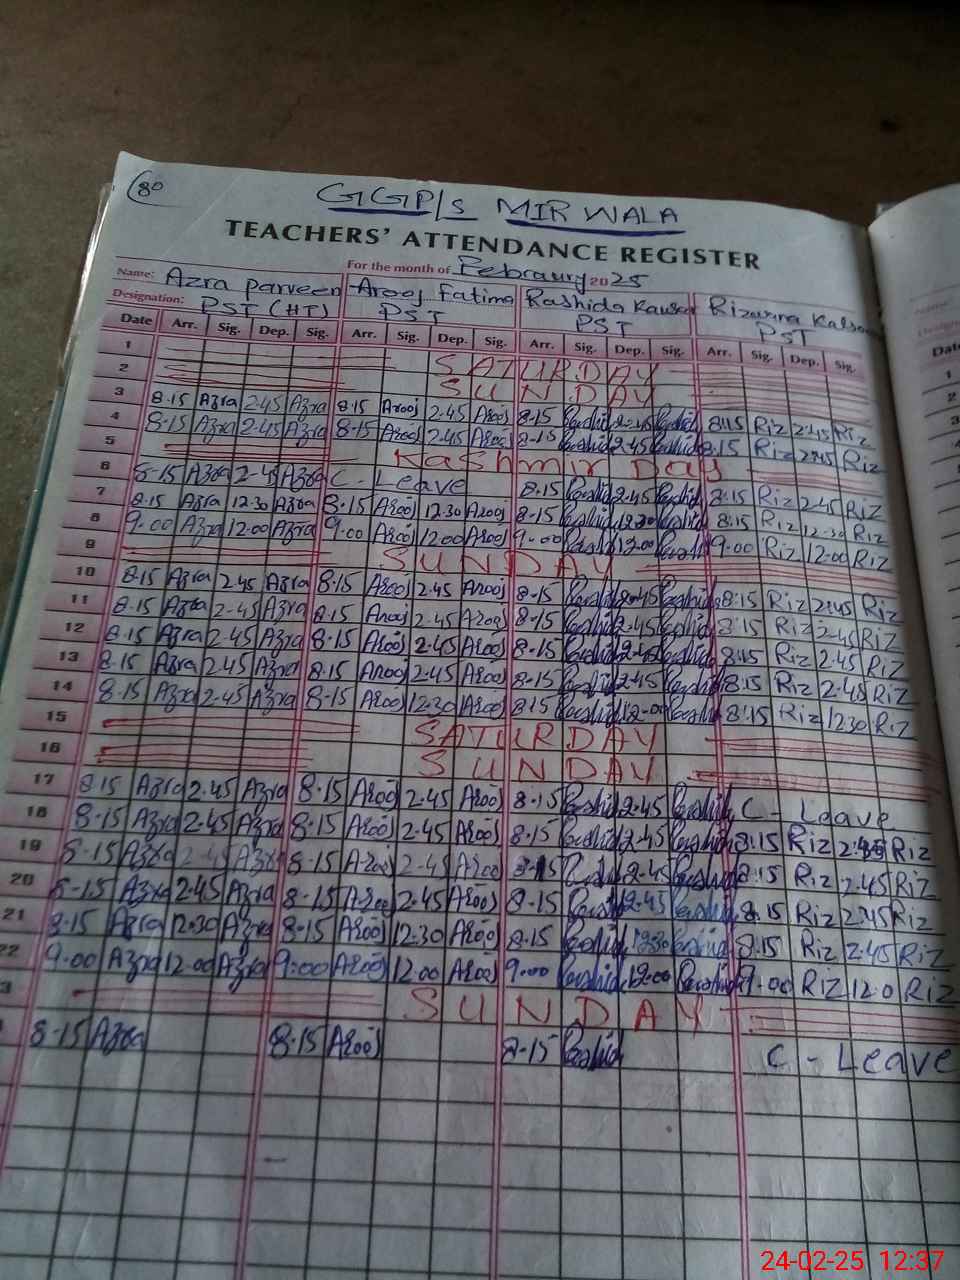 80
GGP/S MIR WALA
TEACHERS' ATTENDANCE REGISTER
For the month of Febraury 2025
Name: Azra parveen Arooj Fatima Rashida Kausar Rizwana Kalsoom
Designation: PST (HT) PST PST PST
Date Arr. Sig. Dep. Sig. Arr. Sig. Dep. Sig. Arr. Sig. Dep. Sig. Arr. Sig. Dep. Sig.
1 SATURDAY
2 SUNDAY
3 8.15 Azra 2.45 Azra 8.15 Arooj 2.45 Arooj 8-15 Rashid 2.45 Rashid 8:15 Riz 2.45 Riz
4 8.15 Azra 2.45 Azra 8-15 Arooj 2.45 Arooj 8-15 Rashid 2.45 Rashid 8.15 Riz 2.45 Riz
5 Kashmir Day
6 8-15 Azra 2-45 Azra C - Leave 8.15 Rashid 2.45 Rashid 8:15 Riz 2.45 Riz
7 8.15 Azra 12.30 Azra 8.15 Arooj 12.30 Arooj 8-15 Rashid 12.30 Rashid 8:15 Riz 12-30 Riz
8 9.00 Azra 12.00 Azra 9.00 Arooj 12.00 Arooj 9-00 Rashid 12.00 Rashid 9.00 Riz 12.00 Riz
9 SUNDAY
10 8.15 Azra 2.45 Azra 8.15 Arooj 2.45 Arooj 8-15 Rashid 2.45 Rashid 8:15 Riz 2.45 Riz
11 8.15 Azra 2-45 Azra 8.15 Arooj 2.45 Arooj 8-15 Rashid 2.45 Rashid 8:15 Riz 2.45 Riz
12 8.15 Azra 2.45 Azra 8.15 Arooj 2.45 Arooj 8-15 Rashid 2.45 Rashid 8:15 Riz 2.45 Riz
13 8.15 Azra 2.45 Azra 8.15 Arooj 2.45 Arooj 8-15 Rashid 2.45 Rashid 8:15 Riz 2.45 Riz
14 8.15 Azra 2.45 Azra 8-15 Arooj 12.30 Arooj 8.15 Rashid 12-00 Rashid 8:15 Riz 12.30 Riz
15 SATURDAY
16 SUNDAY
17 8.15 Azra 2.45 Azra 8.15 Arooj 2.45 Arooj 8.15 Rashid 2.45 Rashid C - Leave
18 8.15 Azra 2.45 Azra 8.15 Arooj 2.45 Arooj 8.15 Rashid 2.45 Rashid 8:15 Riz 2.45 Riz
19 8-15 Azra 2-45 Azra 8-15 Arooj 2-45 Arooj 8-15 Rashid 2.45 Rashid 8:15 Riz 2.45 Riz
20 8-15 Azra 2.45 Azra 8-15 Arooj 2.45 Arooj 8-15 Rashid 2.45 Rashid 8.15 Riz 2.45 Riz
21 8.15 Azra 12.30 Azra 8-15 Arooj 12.30 Arooj 8.15 Rashid 12.30 Rashid 8:15 Riz 2.45 Riz
22 9.00 Azra 12.00 Azra 9:00 Arooj 12.00 Arooj 9.00 Rashid 12.00 Rashid 9.00 Riz 12.0 Riz
3 SUNDAY
8-15 Azra 8.15 Arooj 8-15 Rashid C - Leave
Date
1
2
3
4
5
6
7
8
9
10
11
12
13
24-02-25 12:37